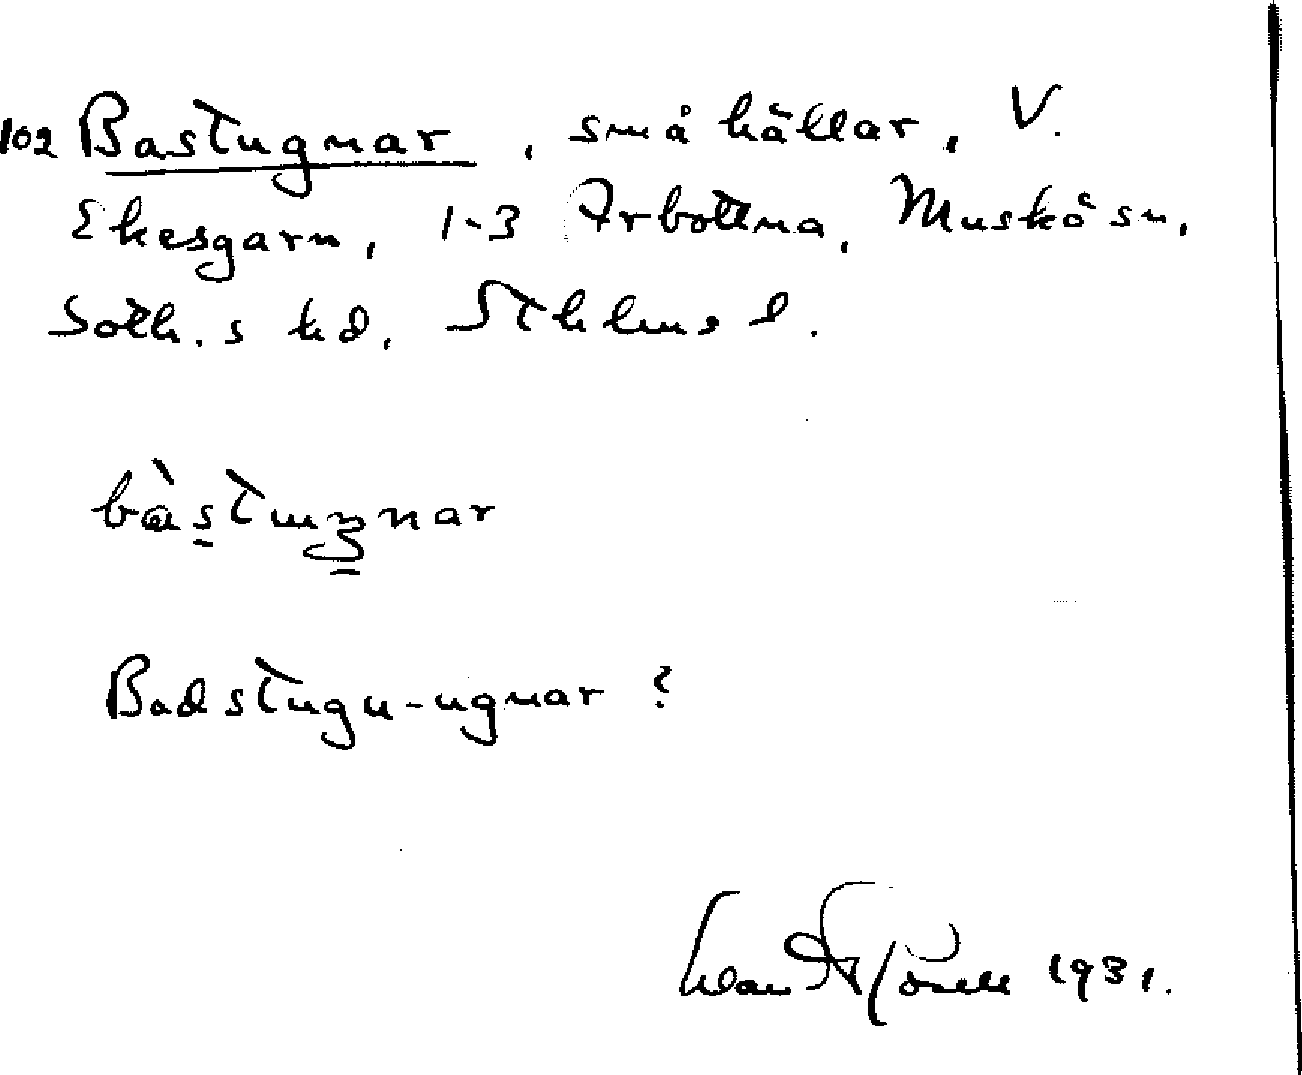 102 Bastugnar, små hällar, V.
Ekesgarn, 1-3 Arbottna, Muskö sn,
Soth.s hd, Sthlms l.
bàstuʒnar
Badstugu-ugnar?
1931.